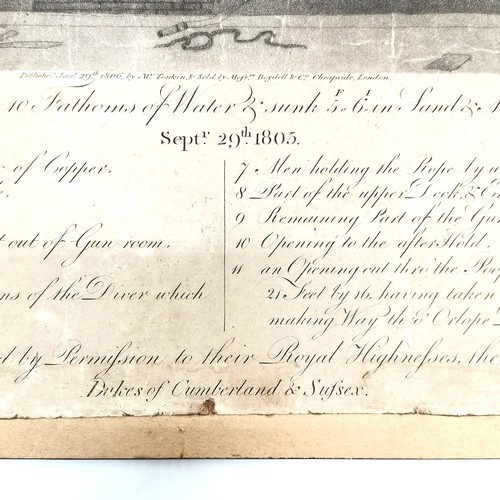 Publish'd Jan.y 29.th 1806, by M.r Tonkin, & Sold by Mess.rs Boydell & C.o Cheapside, London.
10 Fathoms of Water & sunk 5.F 6.I in Sand &
Sept.r 29.th 1805.
of Copper.
t out of Gun-room.
ns of the Diver which
7 Men holding the Rope by
8 Part of the upper Deck, &
9 Remaining Part of the Gun
10 Opening to the after Hold.
11 an Opening out thro' the
21 Feet by 16, having taken
making Way th'o' Orlope
d by Permission to their Royal Highnesses, the
Dukes of Cumberland & Sussex.